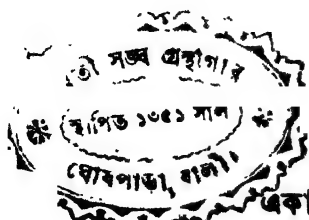 সঙ্ঘ গ্রন্থাগার
স্থাপিত ১৩৫১ সাল
ঘোষপাড়া, বালী